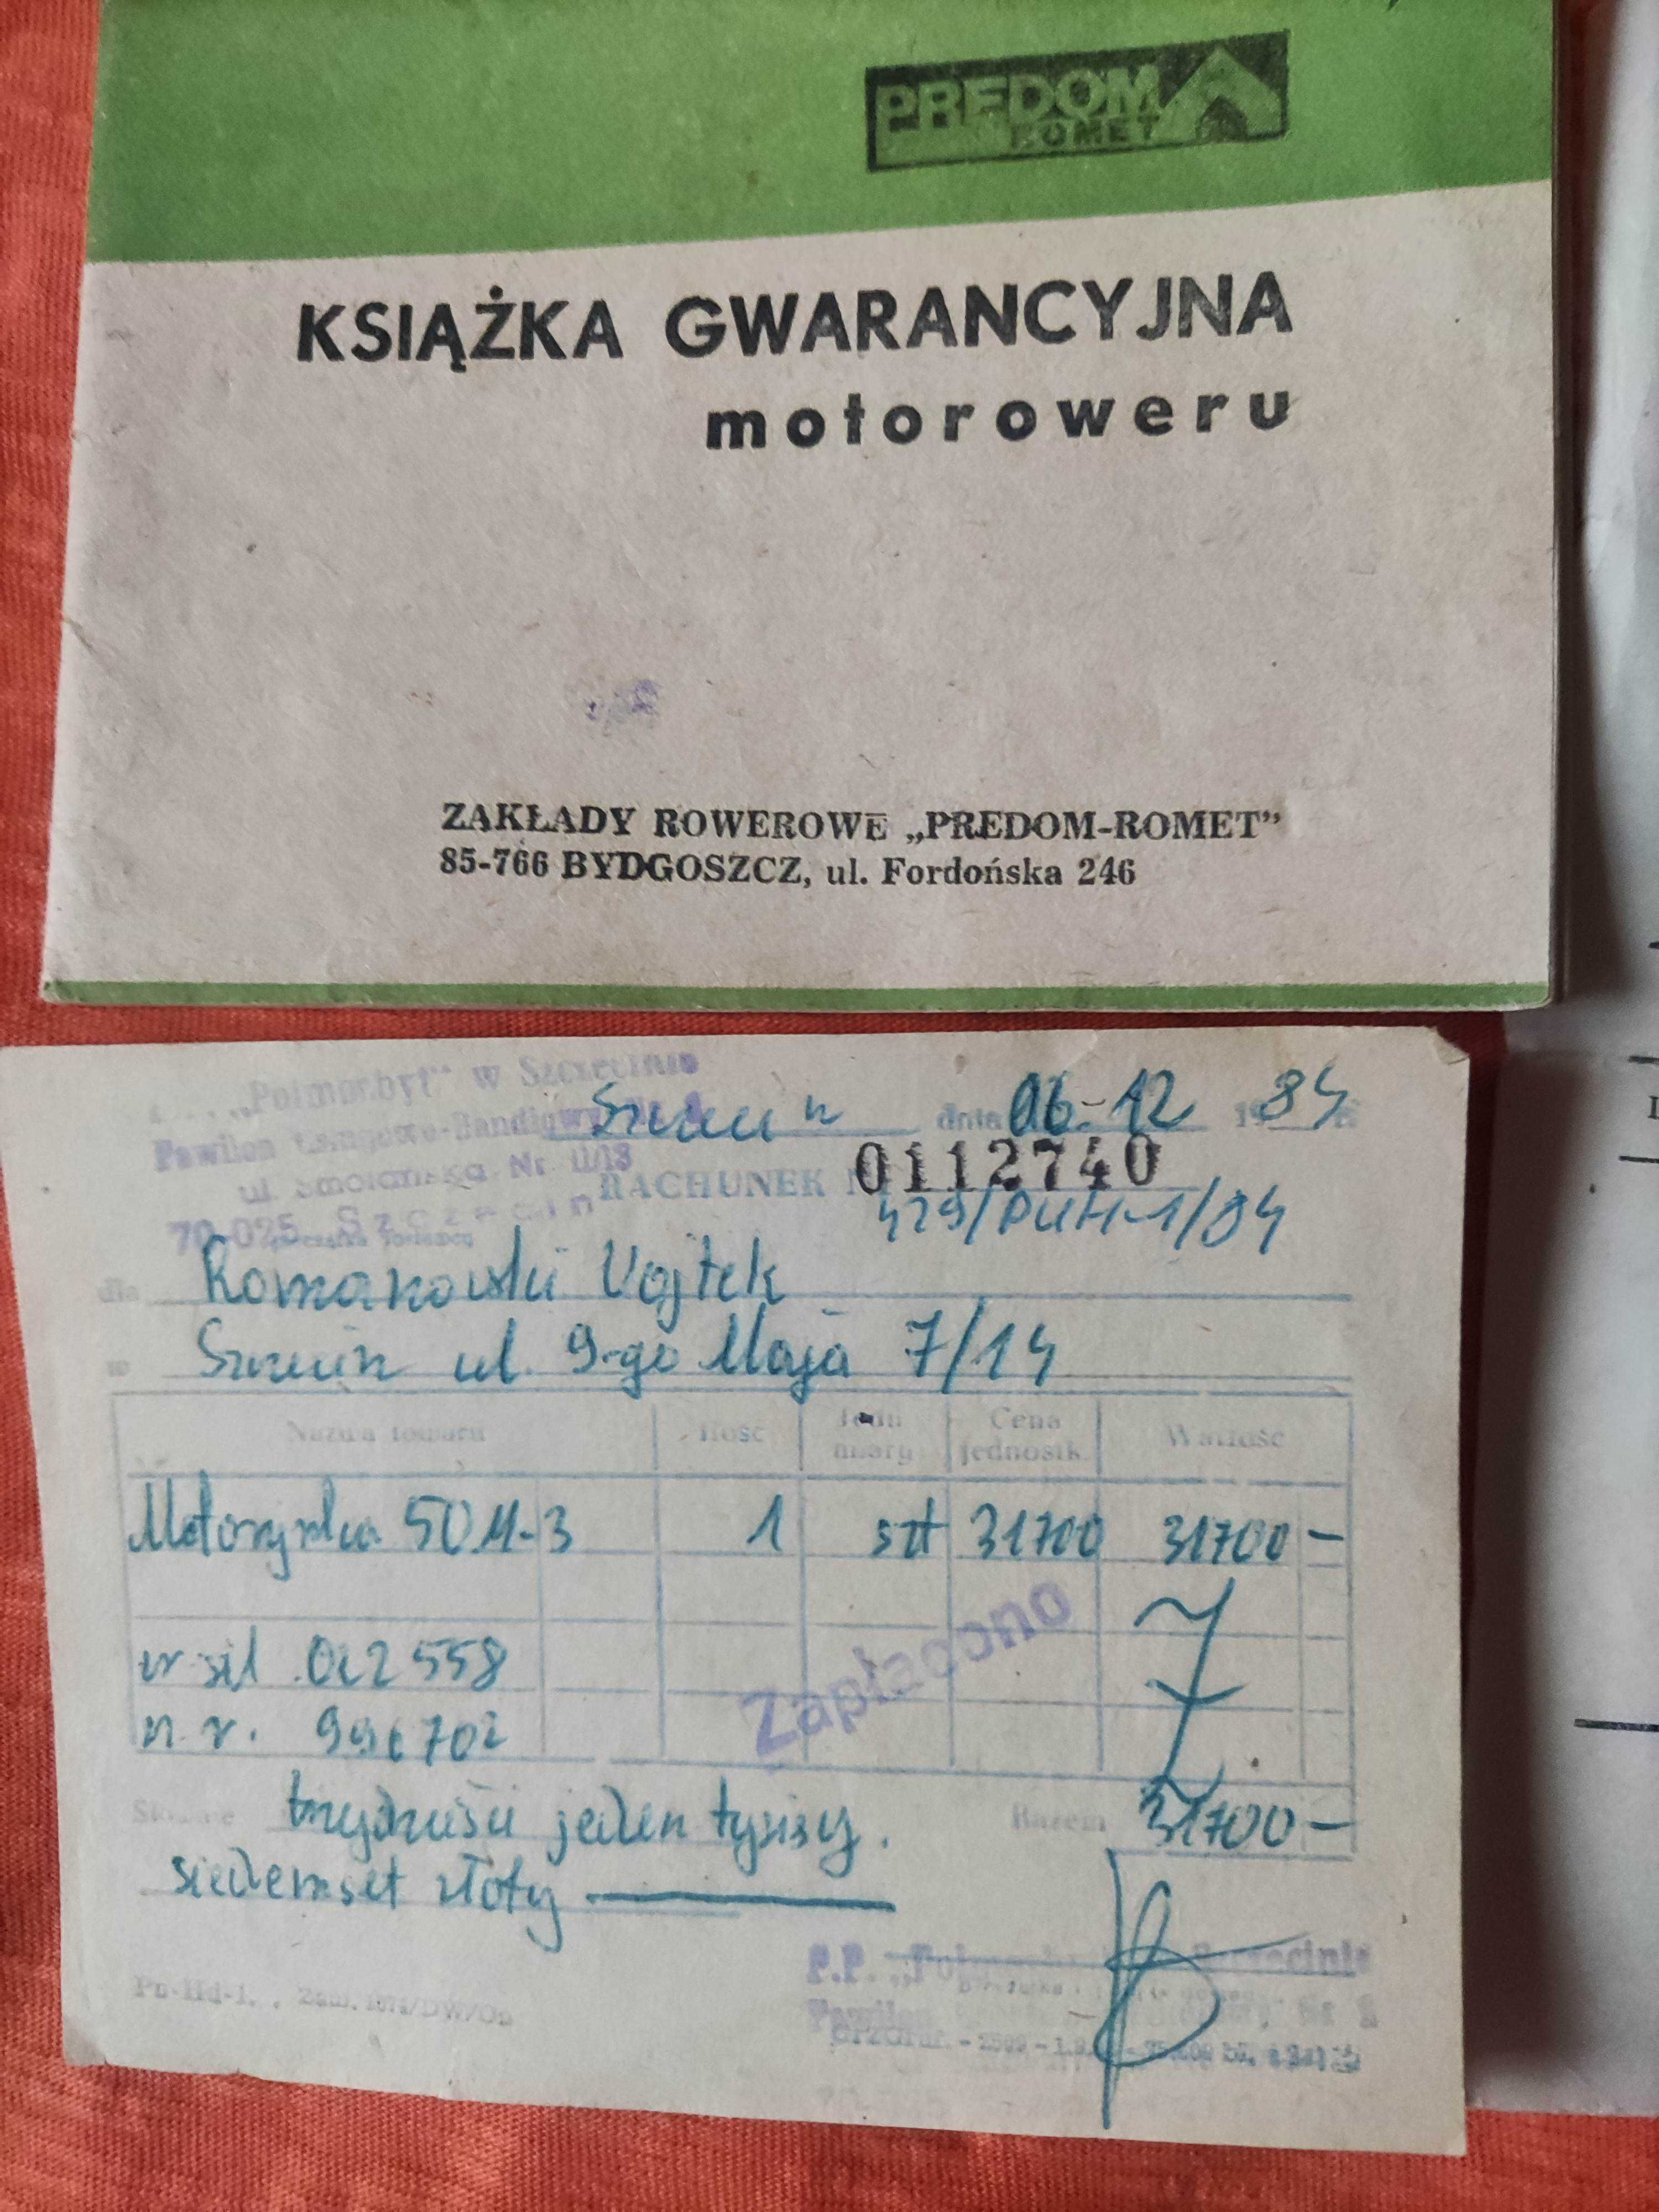 PREDOM
ROMET
KSIĄŻKA GWARANCYJNA
motoroweru
ZAKŁADY ROWEROWE „PREDOM-ROMET”
85-766 BYDGOSZCZ, ul. Fordońska 246
„Polmozbyt” w Szczecinie
Szczecin dnia 06-12 1984
Pawilon Nr 11/13
RACHUNEK 0112740
70-025 Szczecin
429/PUH-1/84
dla Romanowski Wojtek
w Szczecin ul. 9-go Maja 7/14
Nazwa towaru Ilość Jedn. miary Cena jednostk. Wartość
Motorynka 50M-3 1 szt 31700 31700 —
nr sil 012558
n. r. 996702
Zapłacono
Słownie trzydzieści jeden tysięcy. Razem 31700 —
siedemset złoty
P.P. Szczecinie
Pawilon